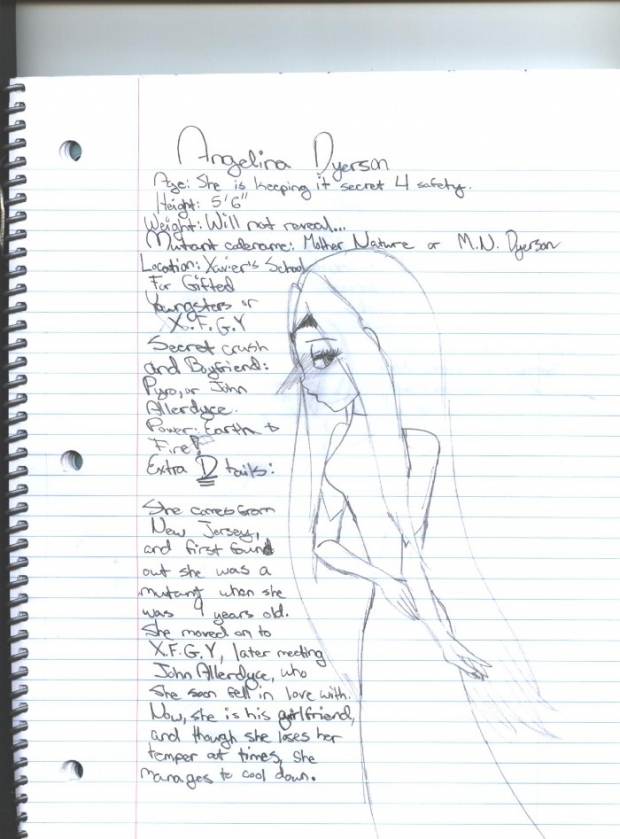 Angelina Dyerson
Age: She is keeping it secret 4 safety.
Height: 5'6"
Weight: Will not reveal...
Mutant codename: Mother Nature or M.N. Dyerson
Location: Xavier's School
For Gifted
Youngsters or
X.F.G.Y
Secret crush
and Boyfriend:
Pyro, or John
Allerdyce.
Power: Earth &
Fire!
Extra D tails:
She comes from
New Jersey,
and first found
out she was a
mutant when she
was 9 years old.
She moved on to
X.F.G.Y, later meeting
John Allerdyce, who
she soon fell in love with.
Now, she is his girlfriend,
and though she loses her
temper at times, she
manages to cool down.